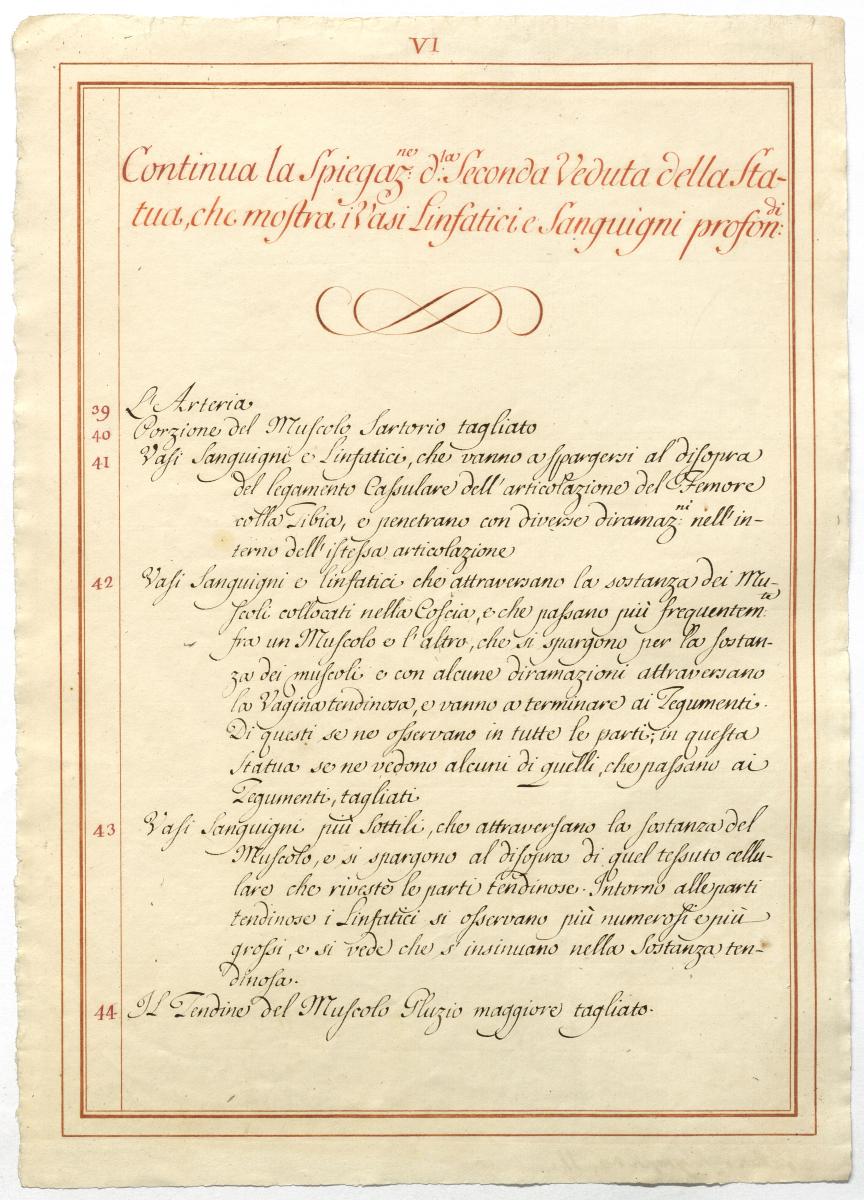 VI
Continua la Spiegaz:ne d:la Seconda Veduta della Sta-
tua, che mostra i Vasi Linfatici e Sanguigni profon:di
39 L'Arteria
40 Porzione del Muscolo Sartorio tagliato
41 Vasi Sanguigni e Linfatici, che vanno a spargersi al disopra
del legamento Cassulare dell'articolazione del Femore
colla Tibia, e penetrano con diverse diramaz:ni nell'in-
terno dell'istessa articolazione
42 Vasi Sanguigni e linfatici che attraversano la sostanza dei Mu-
scoli collocati nella Coscia, e che passano più frequentem:te
fra un Muscolo e l'altro, che si spargono per la sostan-
za dei muscoli e con alcune diramazioni attraversano
la Vagina tendinosa, e vanno a terminare ai Tegumenti.
Di questi se ne osservano in tutte le parti; in questa
Statua se ne vedono alcuni di quelli, che passano ai
Tegumenti, tagliati
43 Vasi Sanguigni più Sottili, che attraversano la sostanza del
Muscolo, e si spargono al disopra di quel tessuto cellu-
lare che riveste le parti tendinose. Intorno alle parti
tendinose i Linfatici si osservano più numerosi e più
grossi, e si vede che s'insinuano nella Sostanza ten-
dinosa.
44 Il Tendine del Muscolo Gluzio maggiore tagliato.